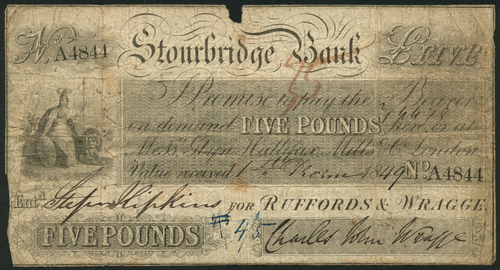 No A4844 Stourbridge Bank £FIVE
I Promise to pay the Bearer
on demand FIVE POUNDS here, or at
Mess.rs Glyn Hallifax, Mills & Co London
Value received 1849 No A4844
Ent.d Hipkins FOR RUFFORDS & WRAGGE.
FIVE POUNDS Charles John Wragge